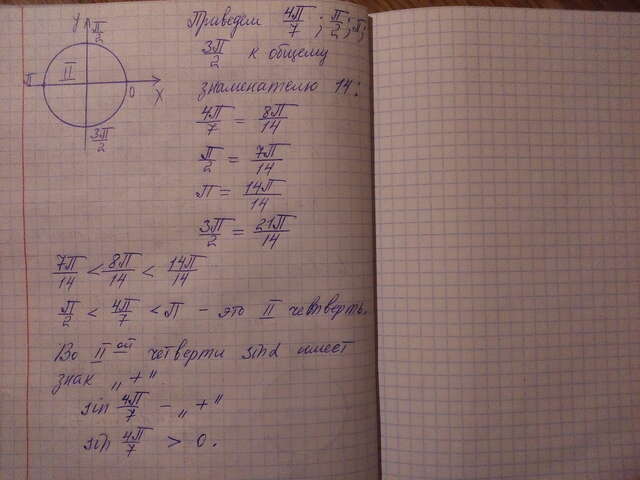 y π/2
II
π 0
x
3π/2
Приведем 4π/7 ; π/2 ; π ;
3π/2 к общему
знаменателю 14:
4π/7 = 8π/14
π/2 = 7π/14
π = 14π/14
3π/2 = 21π/14
7π/14 < 8π/14 < 14π/14
π/2 < 4π/7 < π - это II четверть.
Во II ой четверти sinα имеет
знак „ + "
sin 4π/7 - „ + "
sin 4π/7 > 0.